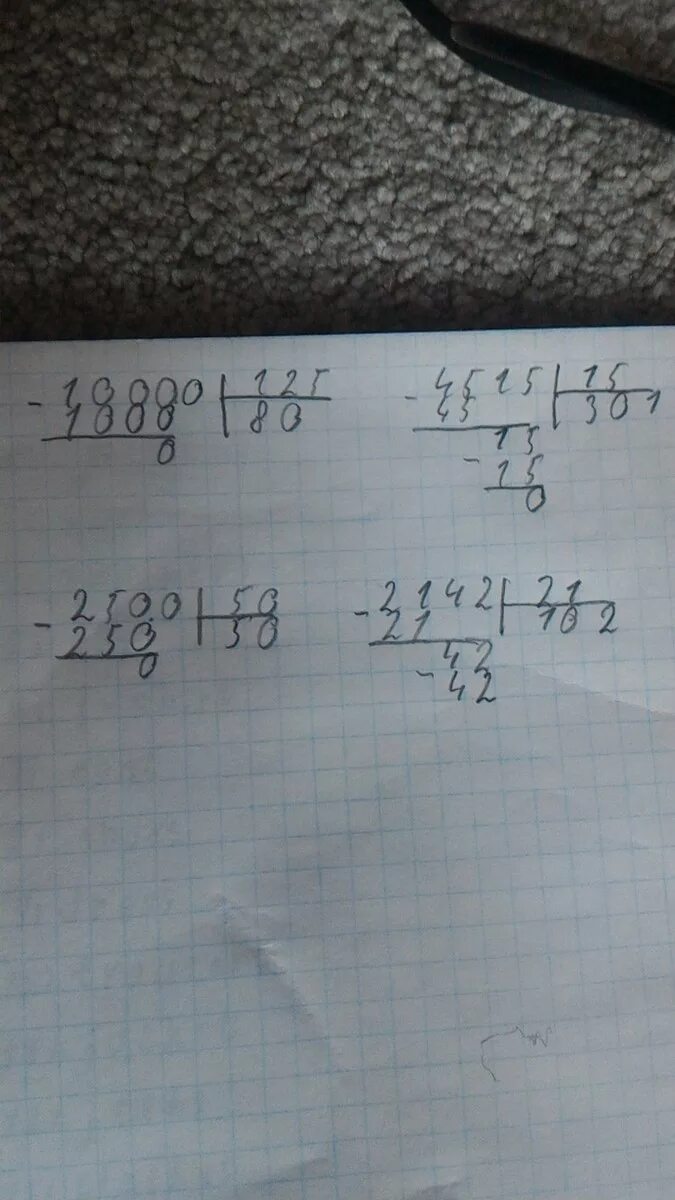 -10000 | 125
1000 | 80
0
-4515 | 15
45 | 301
15
-15
0
-2500 | 50
250 | 50
0
-2142 | 21
21 | 102
42
-42